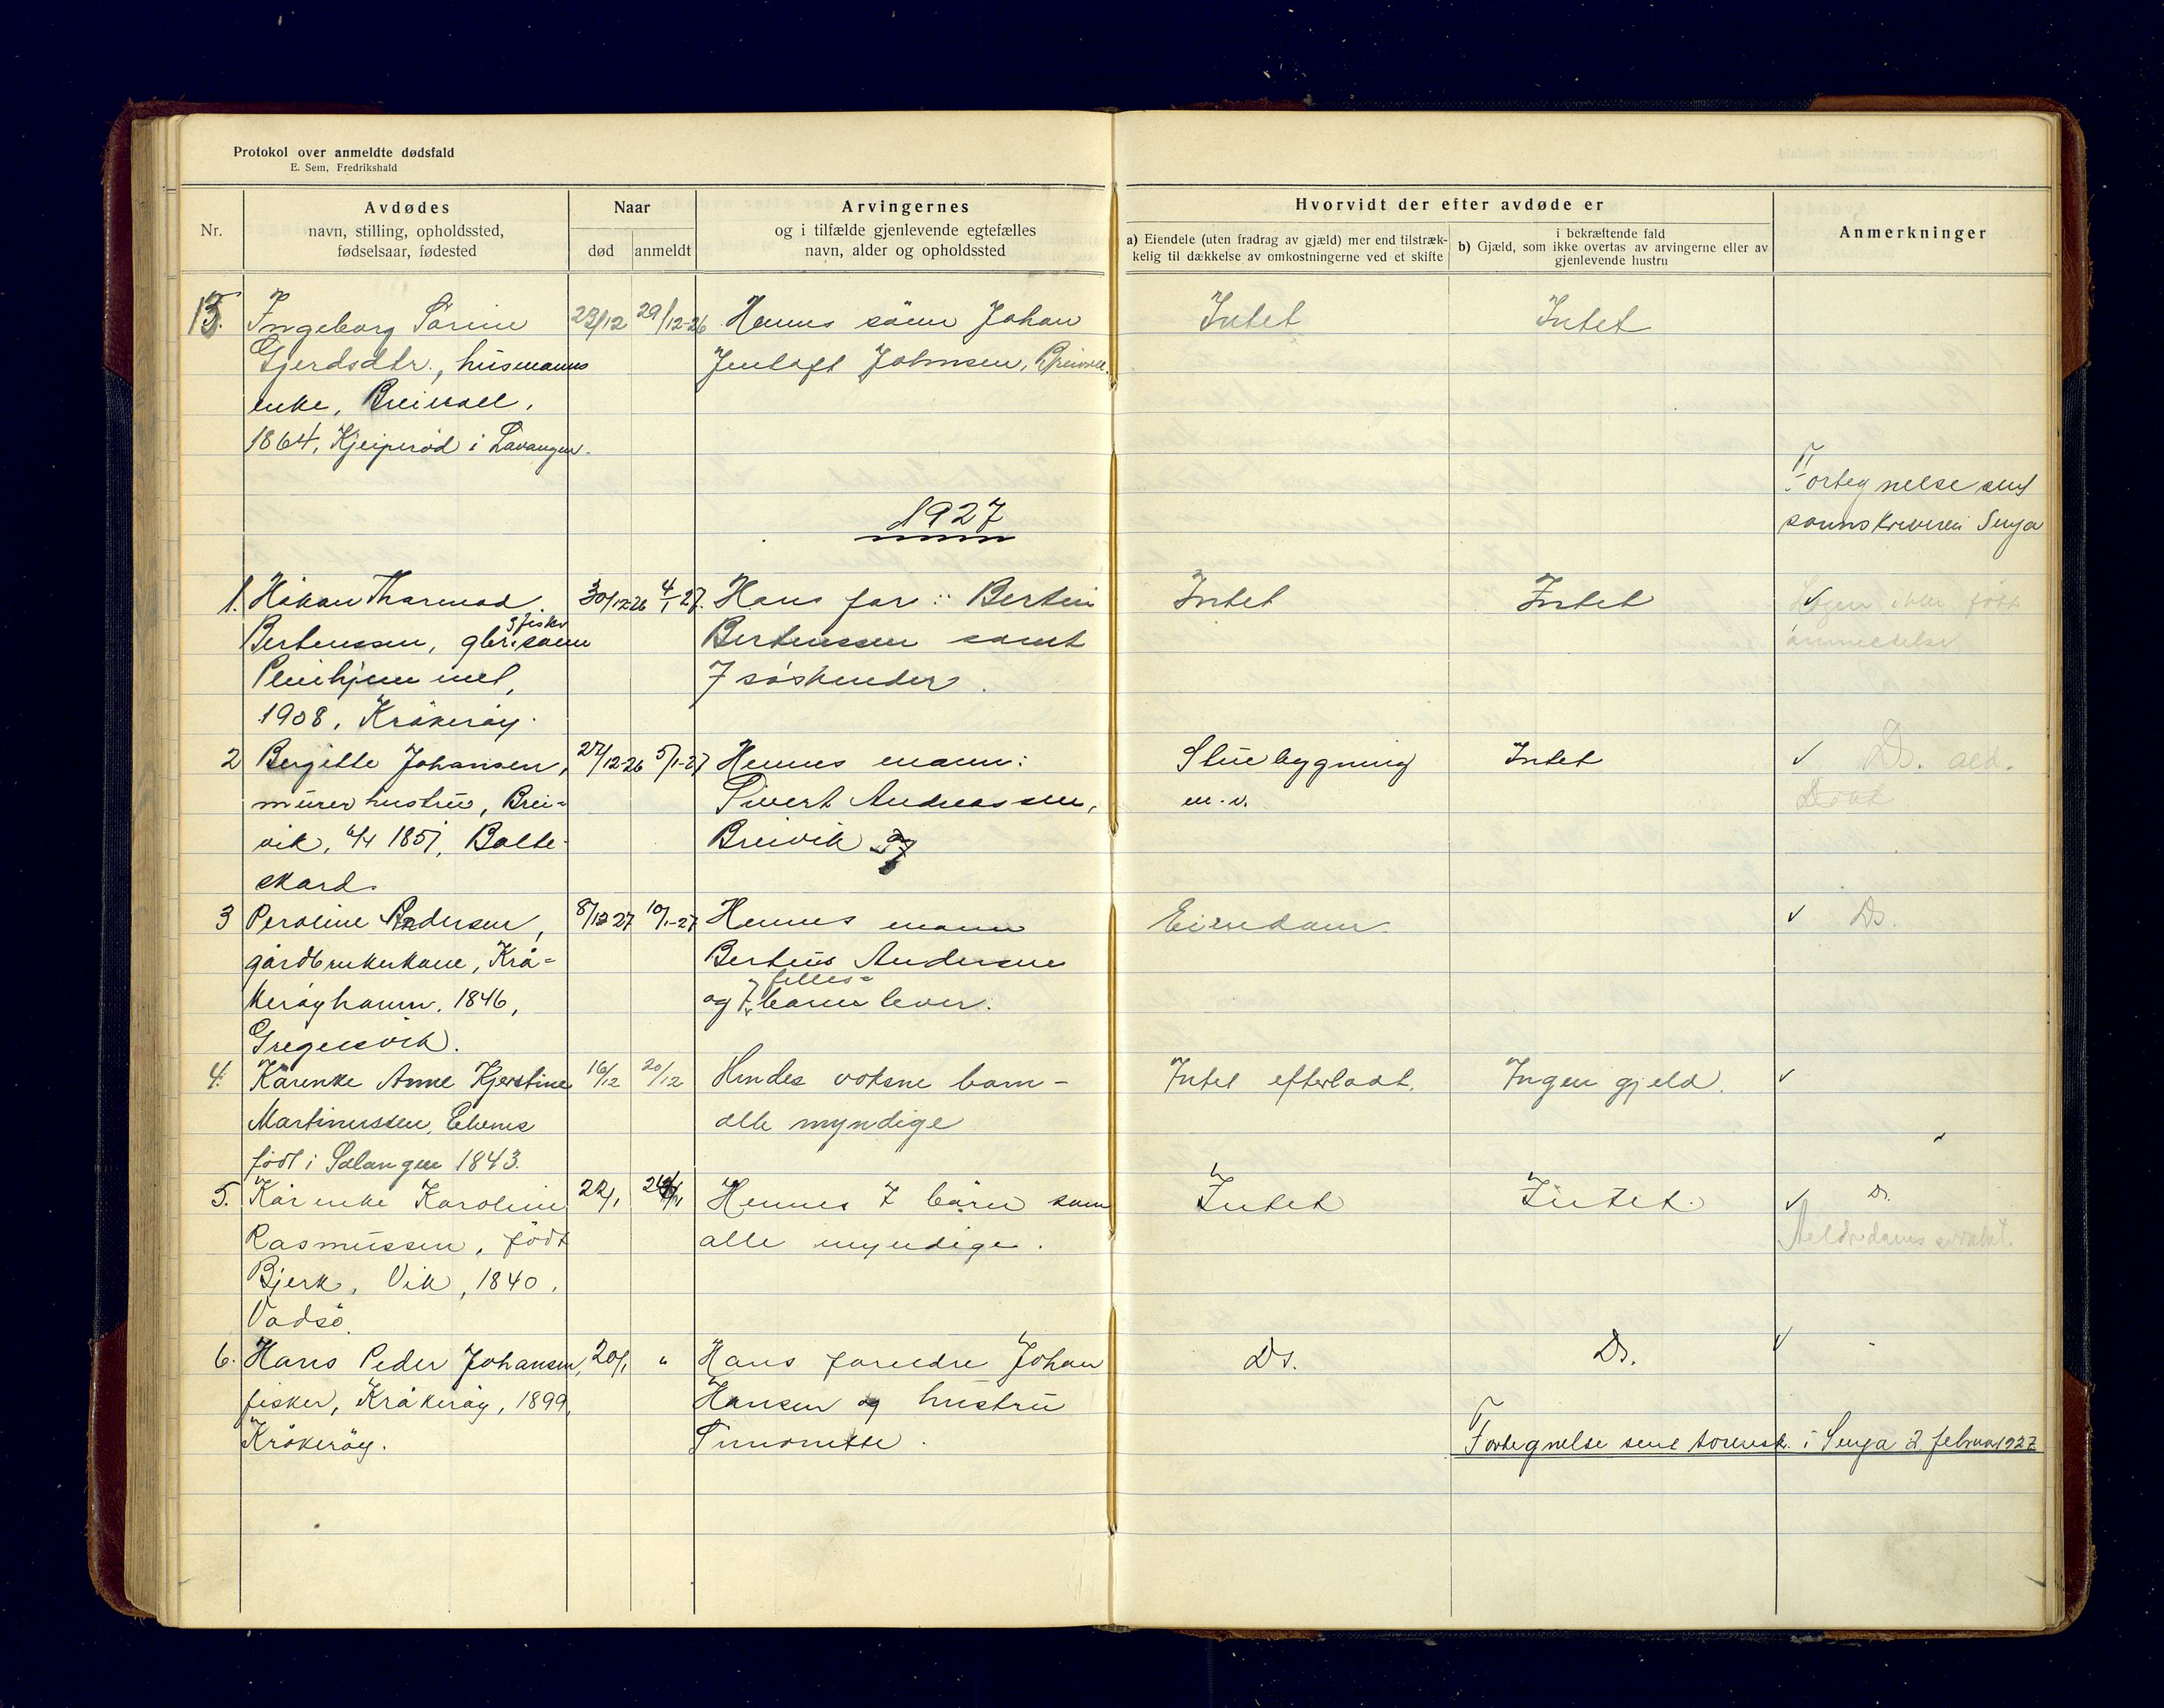 Protokol over anmeldte dødsfald
E. Sem, Fredrikshald
Nr.
Avdødes
navn, stilling, opholdssted,
fødselsaar, fødested
Naar
død
anmeldt
Arvingernes
og i tilfælde gjenlevende egtefælles
navn, alder og opholdssted
Hvorvidt der efter avdøde er
a) Eiendele (uten fradrag av gjæld) mer end tilstræk-
kelig til dækkelse av omkostningerne ved et skifte
i bekræftende fald
b) Gjæld, som ikke overtas av arvingerne eller av
gjenlevende hustru
Anmerkninger
13. Ingeborg Sörine 23/12 29/12-26 Hennes sönn Johan Intet Intet
Gjerdsdtr., husmanns Jentoft Johnsen,
enke, Breivoll,
1864, Kjeiperöd i Lavangen.
Fortegnelse sent
sorenskriveren i Senja
1927
1. Håkon Tharmod 30/12-26 4/1-27. Hans far: Bertin Intet Intet
Bertenssen, gbr. & fisker sönn Bertenssen samt
7 söskender.
1908, Kråkeröy.
2 Bergitte Johansen, 27/12-26 5/1-27 Hennes mann: Stuebygning Intet ✓ Do.
murerhustru, Brei- Sivert Andreassen, m.v.
vik, 6/4 1851, Balte- Breivik
skard.
3 Peroline Andersen, 8/12 27 10/1-27 Hennes mann Eiendom. ✓ Do.
gårdbrukerkone, Krå- Bertéus Andersen
keröyhamn, 1846, og 7 felles- barn lever.
Gregusvik.
4. Kårenke Anne Kjerstine 16/12 20/12 Hendes voksne barn - Intet efterladt. Ingen gjeld. ✓
Martinussen, Elvenes alle myndige
född i Salangen 1843.
5. Kårenke Karoline 22/1 Hennes 7 barn som Intet Intet. ✓ Do.
Rasmussen, född alle myndige.
Bjerk, Vik, 1840,
Vadsö.
6. Hans Peder Johansen, 20/1 " Hans foreldre Johan Do. Do. ✓
fisker, Kråkeröy, 1899, Hansen og hustru
Kråkeröy. Simonette.
Fortegnelse sent sorensk. i Senja 2 februar 1927